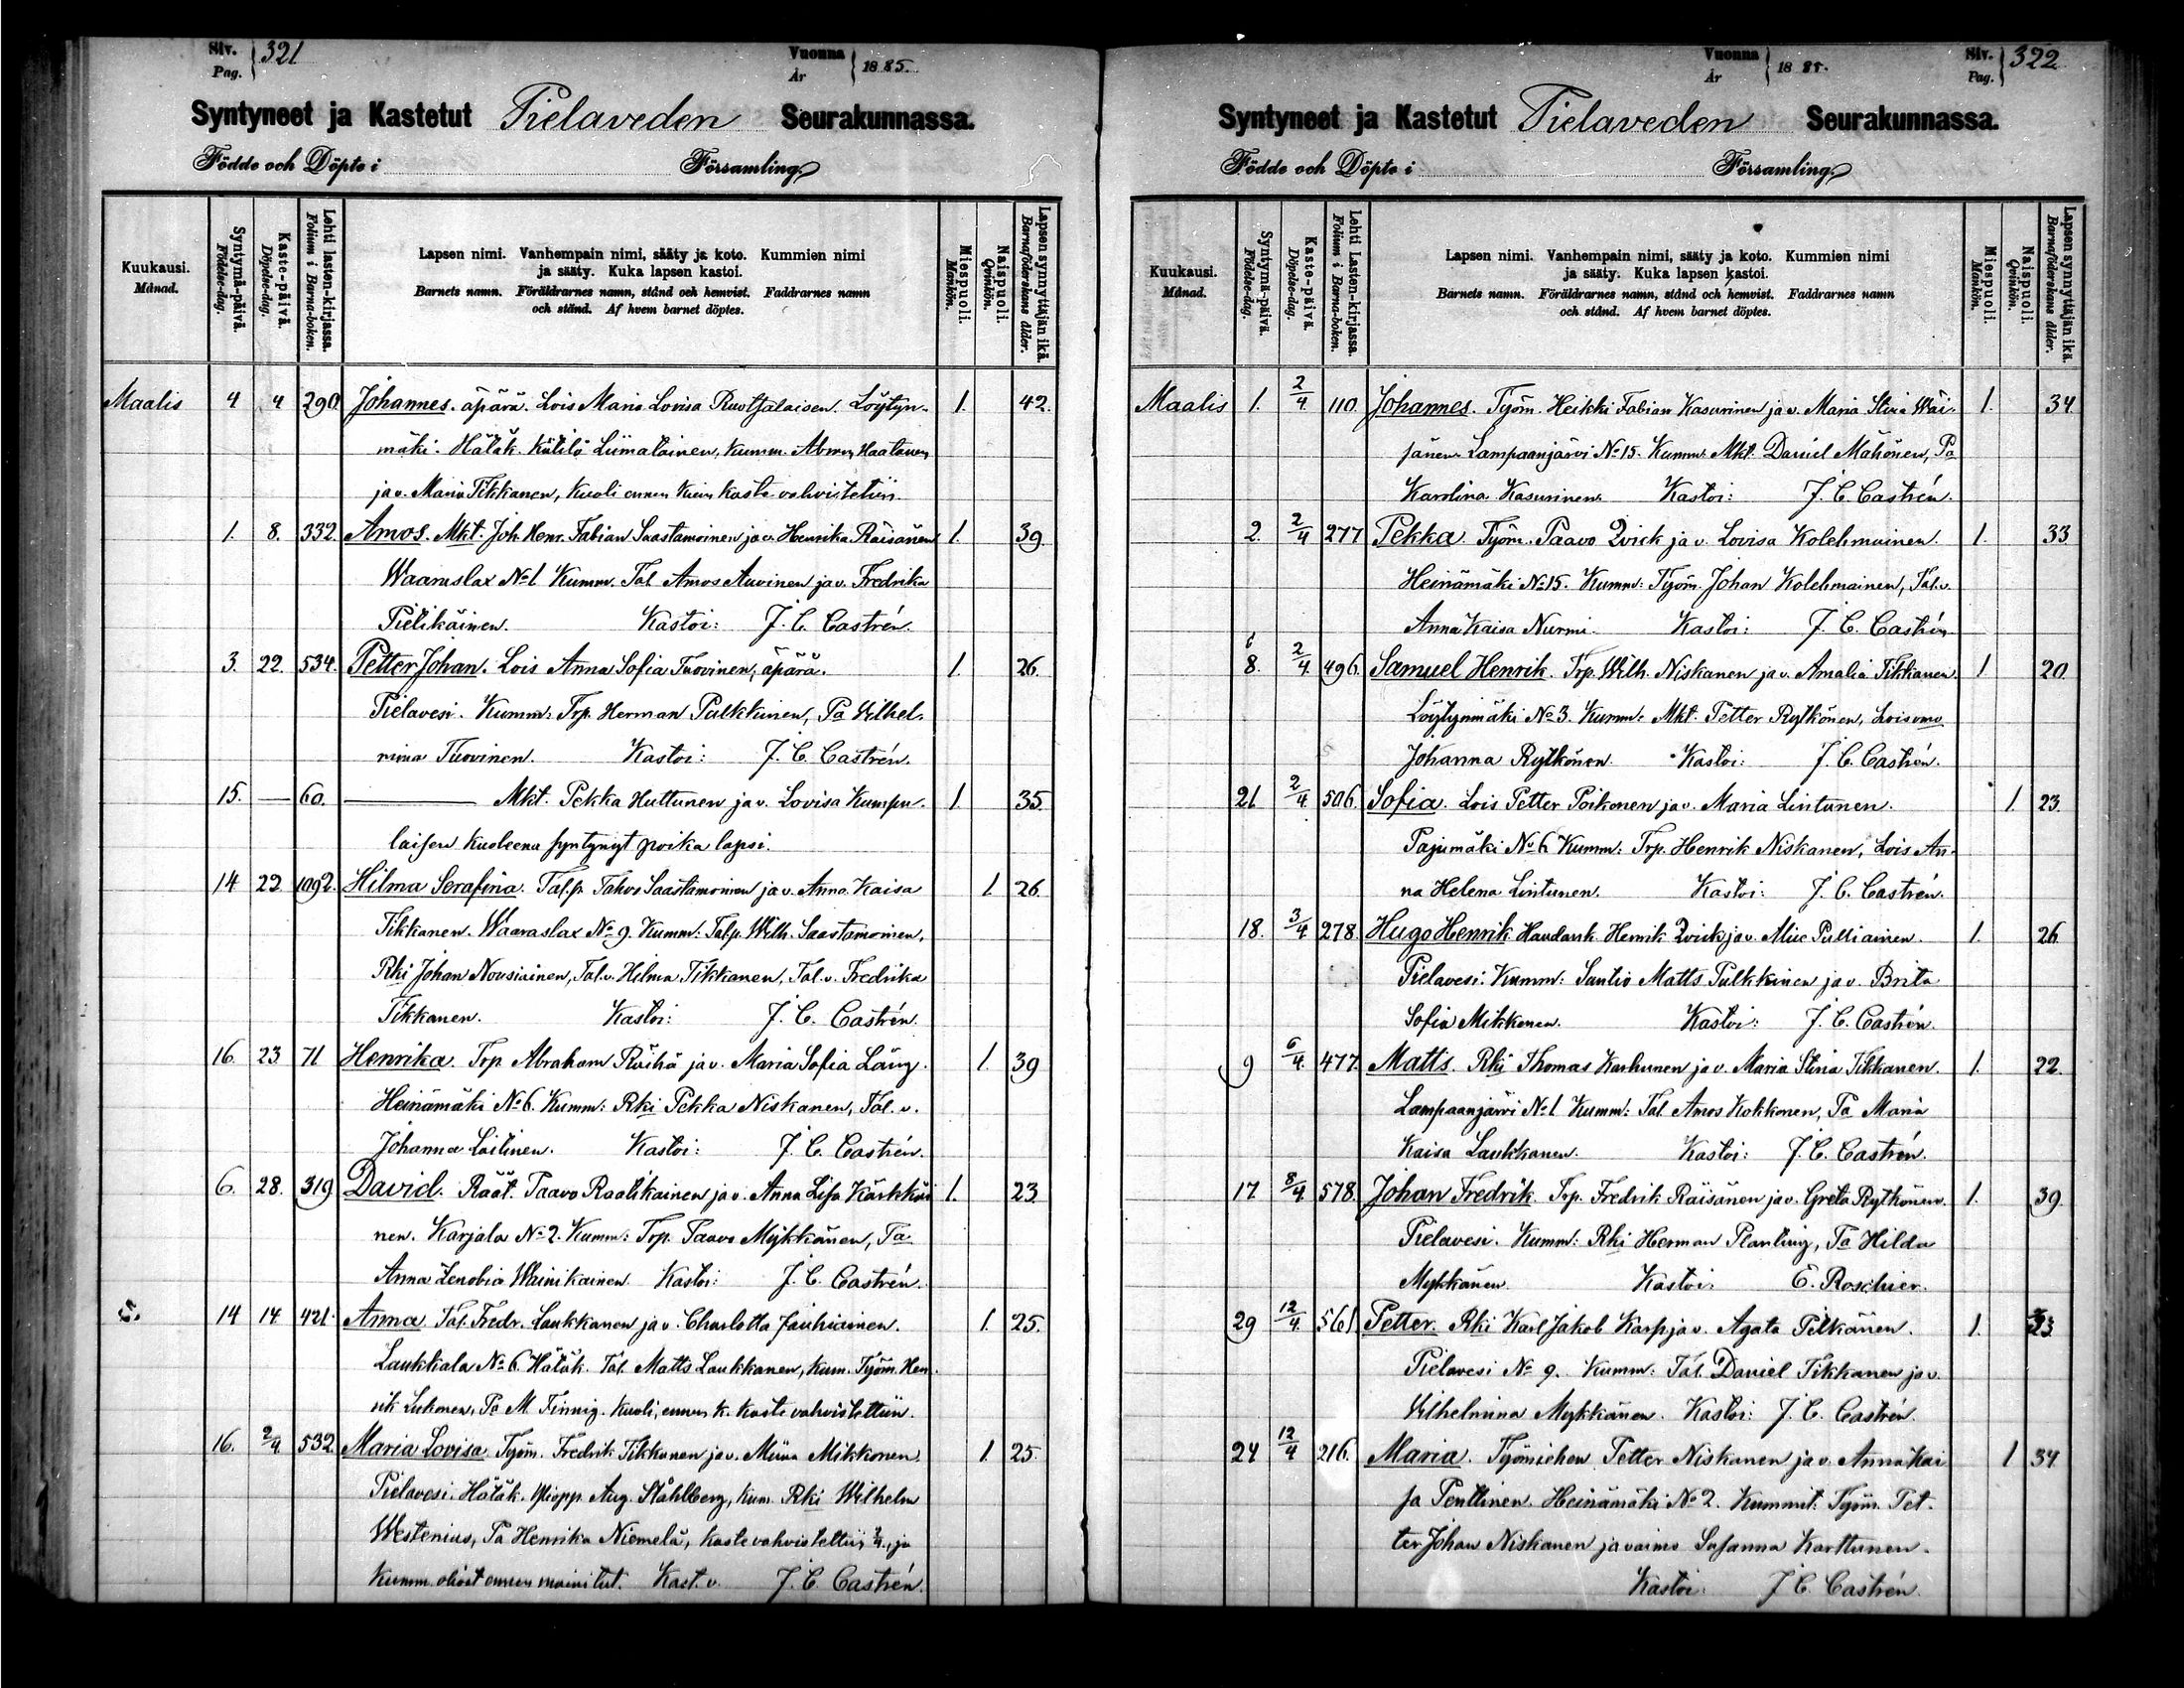 Siv. Pag. 321
Vuonna År 1885.
Syntyneet ja Kastetut Pielaveden Seurakunnassa.
Födde och Döpte i Församling.
Kuukausi. Månad.
Syntymä-päivä. Födelse-dag.
Kaste-päivä. Döpelse-dag.
Lehti lasten-kirjassa. Folium i Barna-boken.
Lapsen nimi. Vanhempain nimi, sääty ja koto. Kummien nimi
ja sääty. Kuka lapsen kastoi.
Barnets namn. Föräldrarnes namn, stånd och hemvist. Faddrarnes namn
och stånd. Af hvem barnet döptes.
Miespuoli. Mankön.
Naispuoli. Qvinkön.
Lapsen synnyttäjän ikä. Barnaföderskans ålder.
Maalis 4 4 290 Johannes. äpärä. Lois Maria Lovisa Ruotsalaisen. Löytyn- 1. 42.
mäki. Hätäk. Kätilö Liimatainen, Kumm. Haatanen
ja v. Maria Tikkanen, Kuoli ennen kuin kaste vahvistettiin.
1. 8. 332. Amos. Mkt. Joh. Henr. Fabian Saastamoinen ja v. Henrika Räisänen 1. 39.
Waaraslax No 1 Kumm. Tal. Amos Auvinen ja v. Fredrika
Pietikäinen. Kastoi: J. C. Castrén.
3. 22. 534. Petter Johan. Lois Anna Sofia Tuovinen, äpärä. 1. 26.
Pielavesi. Kumm: Trp. Herman Pulkkinen, Pa Wilhel-
mina Tuovinen. Kastoi: J. C. Castrén.
15. — 60. — Mkt. Pekka Huttunen ja v. Lovisa Kumpu- 1. 35.
laisen kuoleena syntynyt poika lapsi.
14 22 1092. Hilma Serafina. Tal.p. Tahvo Saastamoinen ja v. Anna Kaisa 1. 26.
Tikkanen. Waaraslax No 9. Kumm: Talp. Wilh. Saastamoinen,
Rki Johan Nousiainen, Tal.v. Hilma Tikkanen, Tal.v. Fredrika
Tikkanen. Kastoi: J. C. Castrén.
16. 23 71 Henrika. Trp. Abraham Räihä ja v. Maria Sofia Läng. 1. 39
Heinämäki No 6. Kumm: Rki Pekka Niskanen, Tal. v.
Johanna Laitinen. Kastoi: J. C. Castrén.
6. 28. 319 David. Räät. Paavo Raatikainen ja v. Anna Lisa Kärkkäi 1. 23.
nen. Karjala No 2. Kumm: Trp. Paavo Mykkänen, Pa
Anna Zenobia Wainikainen Kastoi: J. C. Castrén.
14 14 421. Anna. Tal. Fredr. Laukkanen ja v. Charlotta Jauhiainen. 1. 25.
Laukkala No 6. Hätäk. Tal. Matts Laukkanen, Kum. Työm. Hen-
rik Lukonen, Pa M. Finnig. Kuoli, ennen k. kaste vahvistettiin.
16. 2/4. 532 Maria Lovisa. Työm. Fredrik Tikkanen ja v. Miina Mikkonen. 1. 25.
Pielavesi. Hätäk. Aug. Ståhlberg, Kum. Rki Wilhelm
Westenius, Pa Henrika Niemelä, kaste vahvistettiin 2/4, ja
kumm. olivat ennen mainitut. Kast. v. J. C. Castrén.
Vuonna År 1885.
Siv. Pag. 322
Syntyneet ja Kastetut Pielaveden Seurakunnassa.
Födde och Döpte i Församling.
Kuukausi. Månad.
Syntymä-päivä. Födelse-dag.
Kaste-päivä. Döpelse-dag.
Lehti Lasten-kirjassa. Folium i Barna-boken.
Lapsen nimi. Vanhempain nimi, sääty ja koto. Kummien nimi
ja sääty. Kuka lapsen kastoi.
Barnets namn. Föräldrarnes namn, stånd och hemvist. Faddrarnes namn
och stånd. Af hvem barnet döptes.
Miespuoli. Mankön.
Naispuoli. Qvinkön.
Lapsen synnyttäjän ikä. Barnaföderskans ålder.
Maalis 1. 2/4 110. Johannes. Työm. Heikki Fabian Kasurinen ja v. Maria Stina Wäi- 1. 34.
sänen Lampaanjärvi No 15. Kumm. Mkt. Daniel Mähönen, Pa
Karolina Kasurinen. Kastoi: J. C. Castrén.
2. 2/4 277 Pekka. Työm. Paavo Qvick ja v. Lovisa Kolehmainen. 1. 33.
Heinämäki No 15. Kumm: Työm. Johan Kolehmainen, Tal.v.
Anna Kaisa Nurmi. Kastoi: J. C. Castrén
8. 2/4. 496. Samuel Henrik. Trp. Wilh. Niskanen ja v. Amalia Tikkanen 1 20
Löytynmäki No 3. Kumm: Mkt. Petter Rytkönen, Lois vmo
Johanna Rytkönen. Kastoi: J. C. Castrén.
21 2/4. 506. Sofia. Lois Petter Poikonen ja v. Maria Lintunen. 1. 23.
Pajumäki No 6 Kumm: Trp. Henrik Niskanen, Lois An-
na Helena Lintunen. Kastoi: J. C. Castrén.
18. 3/4 278. Hugo Henrik Haudank. Henrik Qvick ja v. Mije Pulliainen. 1. 26
Pielavesi: Kumm: Suntio Matts Pulkkinen ja v. Brita
Sofia Mikkonen. Kastoi: J. C. Castrén.
9 6/4. 477. Matts. Rki Thomas Karhunen ja v. Maria Stina Tikkanen. 1. 22.
Lampaanjärvi No 1 Kumm: Tal. Amos Kokkonen, Pa Maria
Kaisa Laukkanen. Kastoi: J. C. Castrén.
17 8/4 578. Johan Fredrik. Trp. Fredrik Räisänen ja v. Greta Rytkönen. 1. 39.
Pielavesi. Kumm: Rki Herman Planting, Pa Hilda
Mykkänen. Kastoi. E. Roschier.
29 12/4. 561 Petter. Rki Karl Jakob Karp ja v. Agata Pitkänen. 1. 23
Pielavesi No 9. Kumm: Tal. Daniel Tikkanen ja v.
Wilhelmina Mykkänen. Kastoi: J. C. Castrén.
24 12/4 216. Maria. Työmiehen Petter Niskanen ja v. Anna Kai 1 34
sa Penttinen. Heinämäki No 2. Kummit: Työm. Pet-
ter Johan Niskanen ja vaimo Susanna Karttunen.
Kastoi J. C. Castrén.